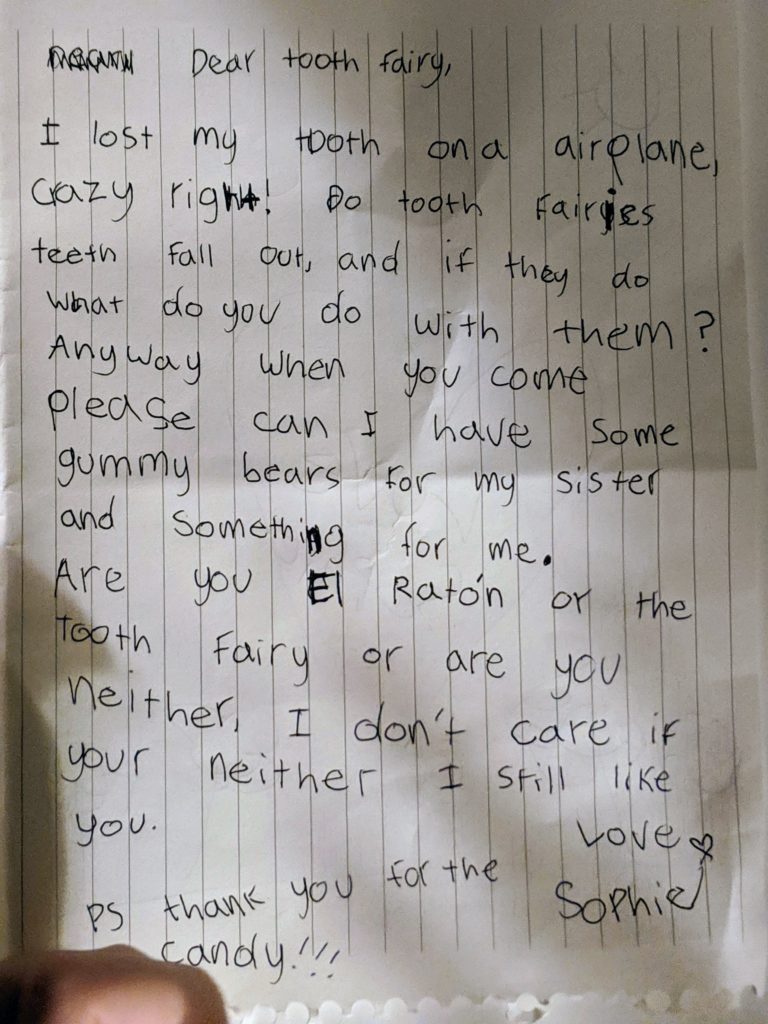 Dear tooth fairy,
I lost my tooth on a airplane,
crazy right! Do tooth fairies
teeth fall out, and if they do
what do you do with them?
Anyway when you come
please can I have some
gummy bears for my sister
and something for me.
Are you El Ratón or the
tooth fairy or are you
neither, I don't care if
your neither I still like
you.
Love
Sophie
PS thank you for the
candy!!!